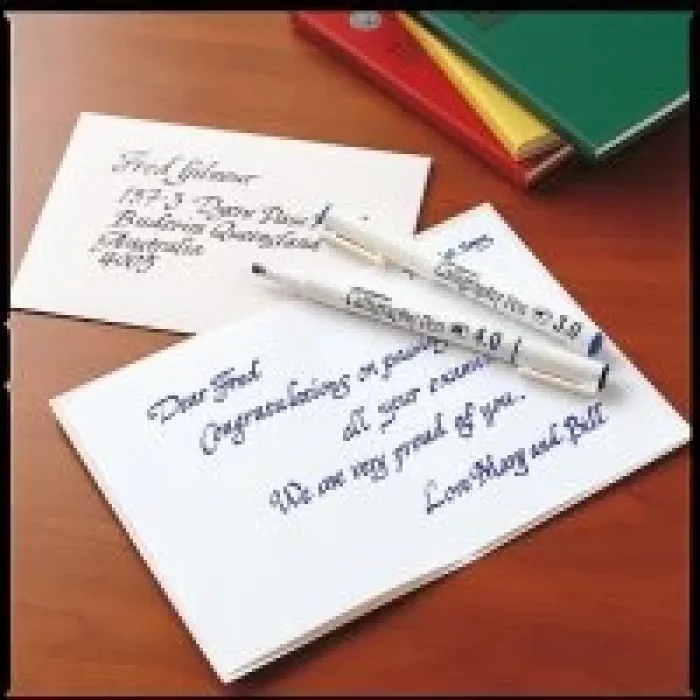 Fred
137-3
Buderim Queensland
Australia
4003
Calligraphy Pen 3.0
Calligraphy Pen 4.0
Dear Fred
Congratulations on passing
all your exams
We are very proud of you.
Love Mary and Bill